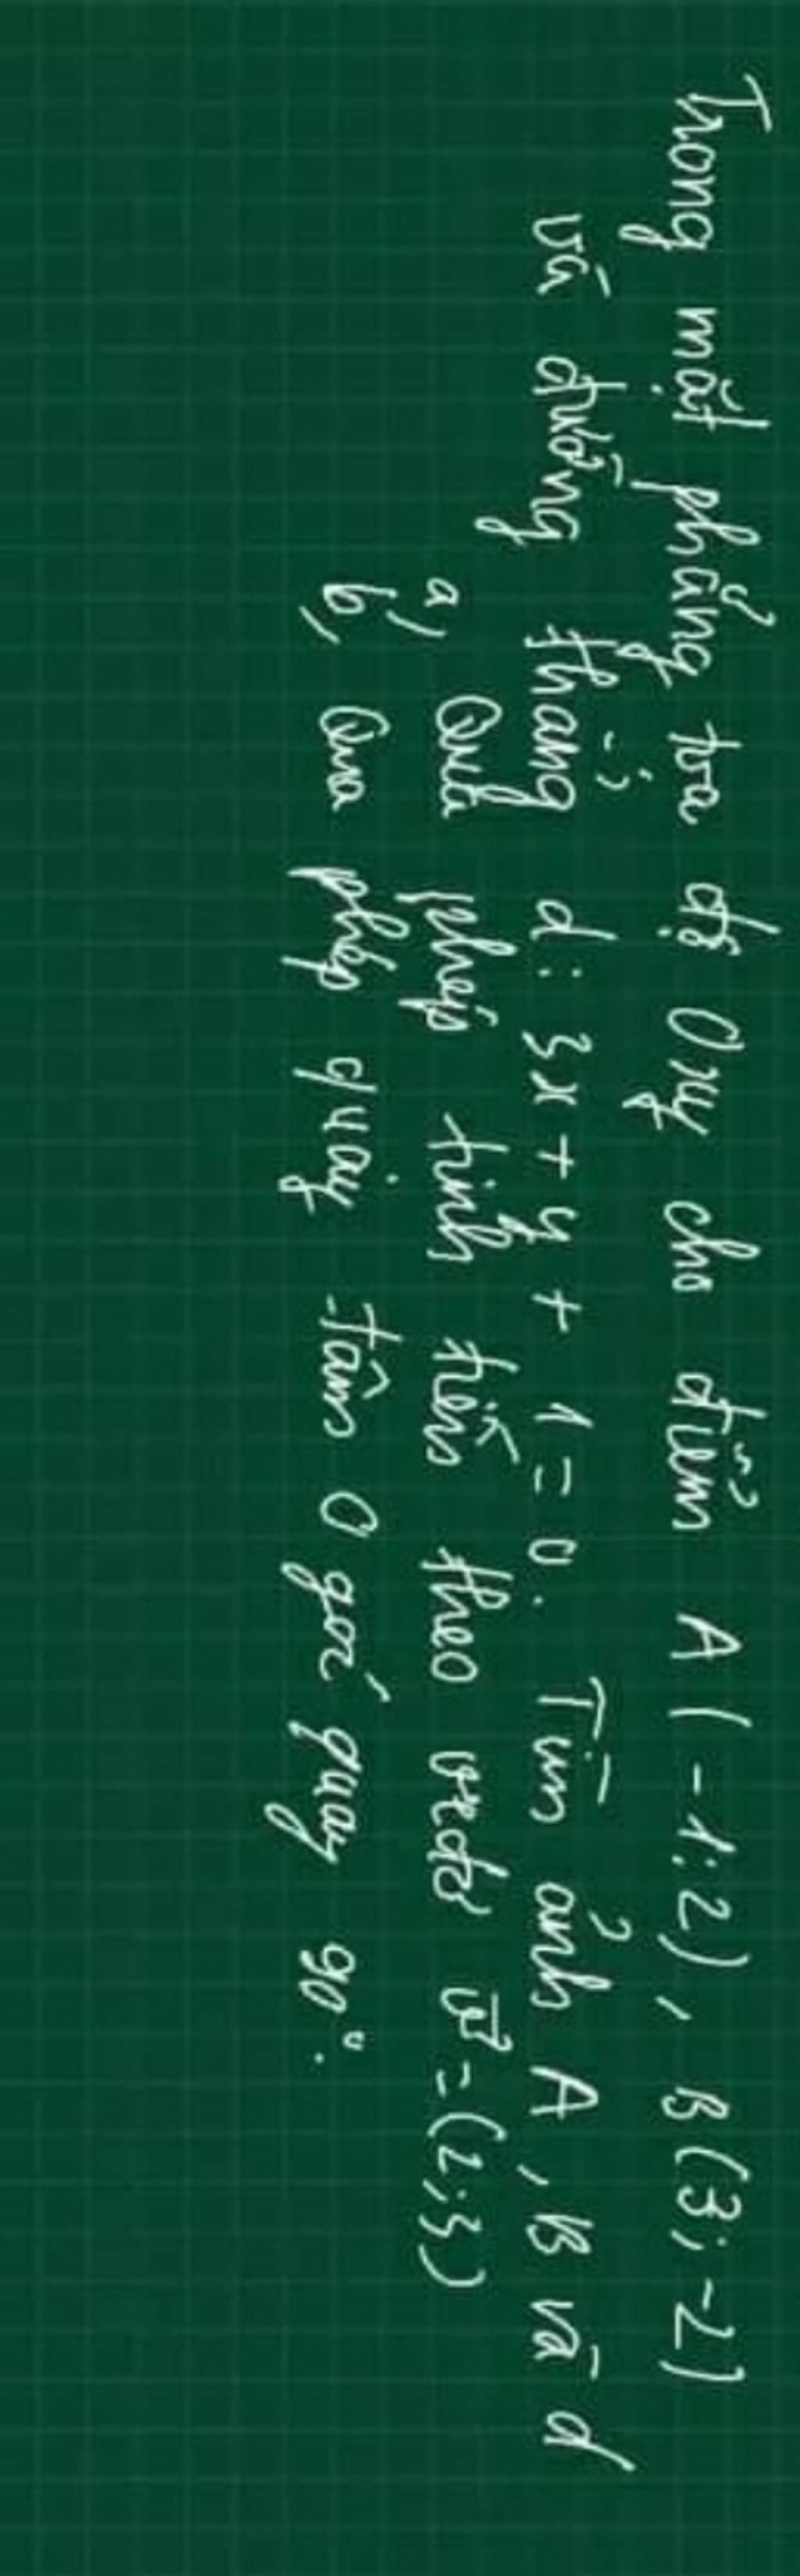 Trong mặt phẳng tọa độ Oxy cho điểm A(-1;2), B(3;-2)
và đường thẳng d: 3x + y + 1 = 0. Tìm ảnh A, B và d
a, Qua phép tịnh tiến theo vectơ v⃗ = (2;3)
b, Qua phép quay tâm O góc quay 90°.